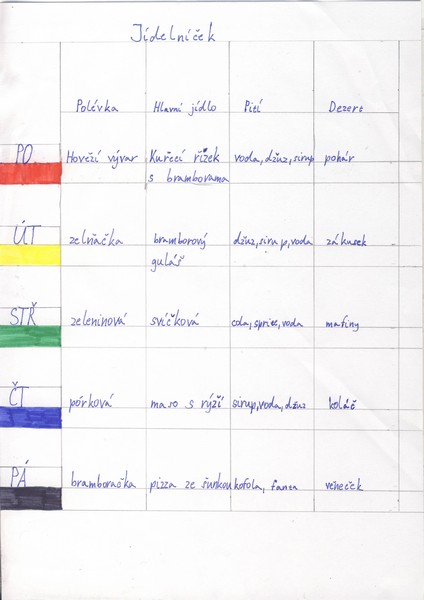 Jídelníček
Polévka Hlavní jídlo Pití Dezert
PO Hovězí vývar Kuřecí řízek voda, džuz, sirup pohár
s bramborama
ÚT zelňačka bramborový džuz, sirup, voda zákusek
guláš
STŘ zeleninová svíčková cola, sprite, voda mafiny
ČT pórková maso s rýží sirup, voda, džuz koláč
PÁ bramboračka pizza ze šunkou kofola, fanta věneček